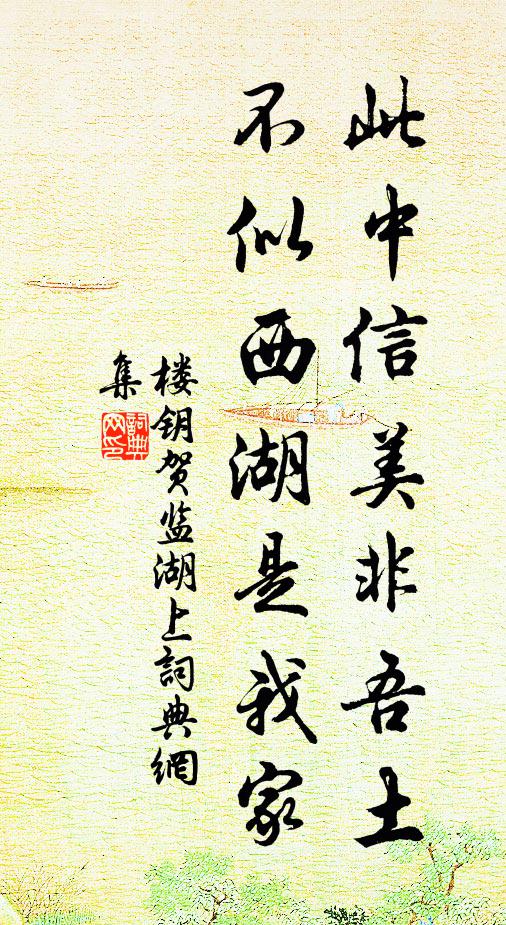 此中信美非吾土
不似西湖是我家
楼钥贺监湖上詞典網
集
詞典網印